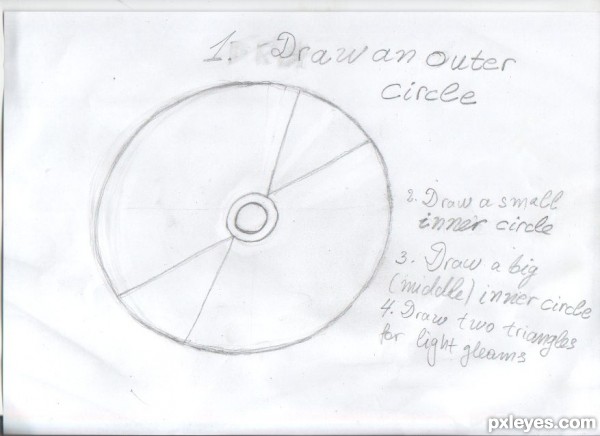 1. Draw an outer
circle
2. Draw a small
inner circle
3. Draw a big
(middle) inner circle
4. Draw two triangles
for light gleams
pxleyes.com